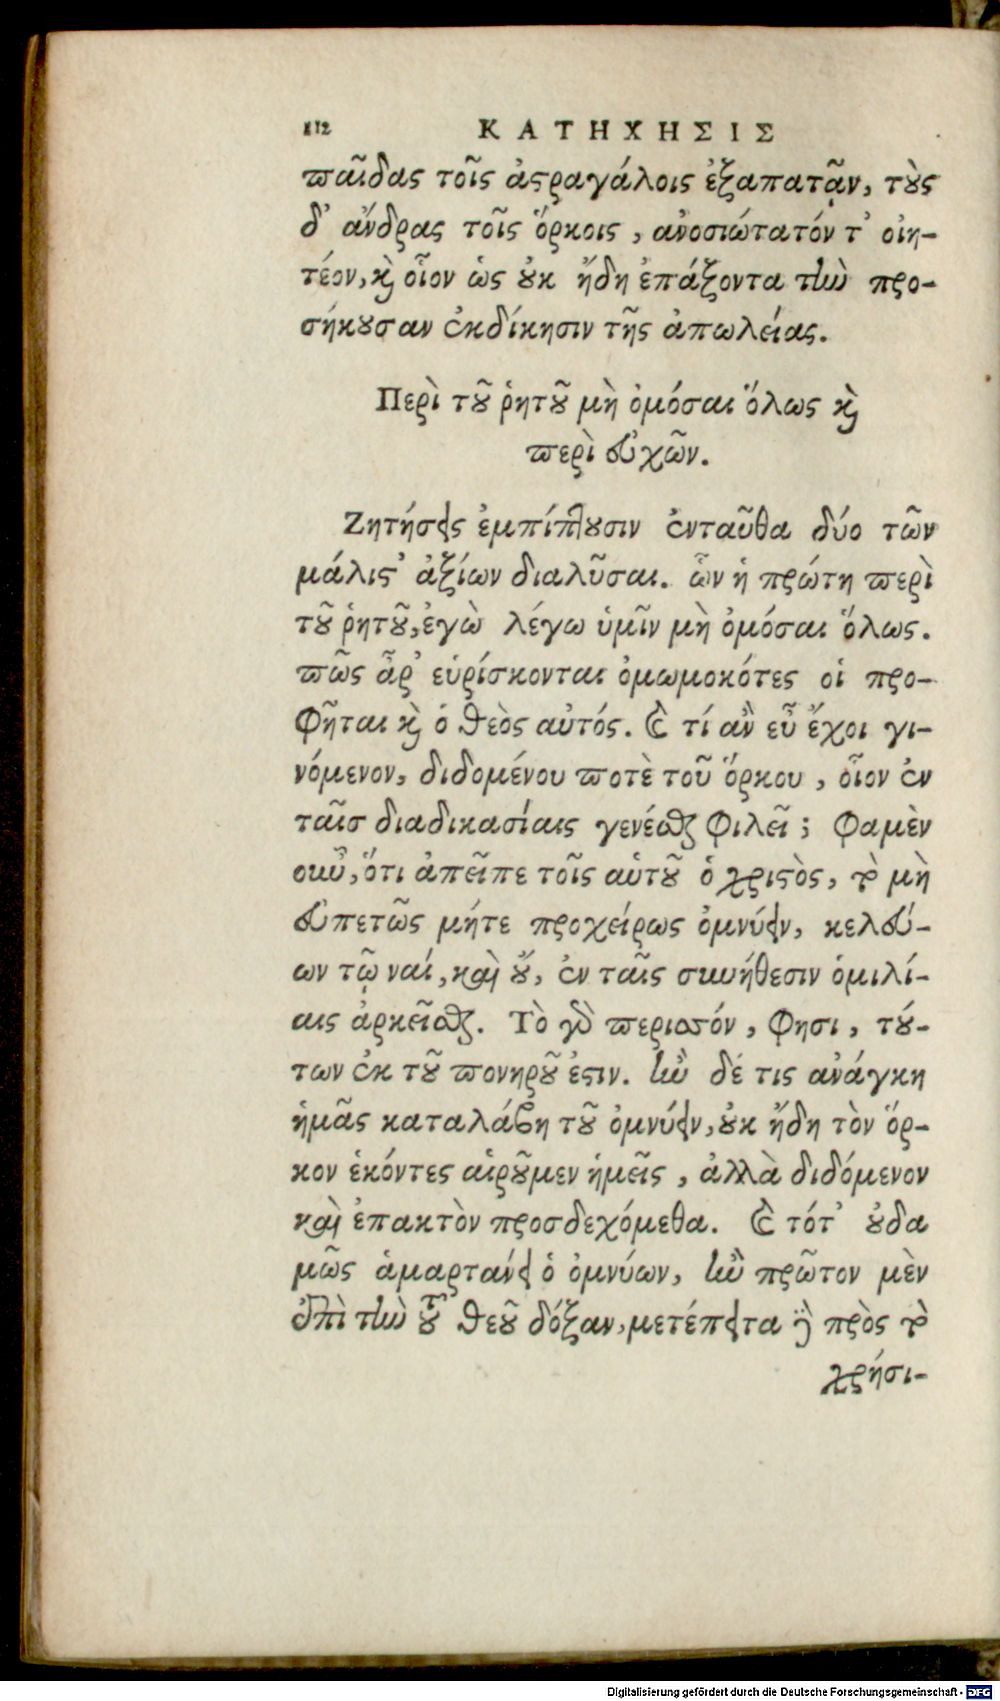 112 ΚΑΤΗΧΗΣΙΣ
παῖδας τοῖς ἀστραγάλοις ἐξαπατᾷν, τοὺς
δ᾽ ἄνδρας τοῖς ὅρκοις, ἀνοσιώτατόν τ᾽ οἰη-
τέον, καὶ οἷον ὡς οὐκ ἤδη ἐπάξοντα τὴν προ-
σήκουσαν ἐκδίκησιν τῆς ἀπωλείας.
Περὶ τοῦ ῥητοῦ μὴ ὀμόσαι ὅλως καὶ
περὶ εὐχῶν.
Ζητήσεις ἐμπίπτουσιν ἐνταῦθα δύο τῶν
μάλιστ᾽ ἀξίων διαλῦσαι. ὧν ἡ πρώτη περὶ
τοῦ ῥητοῦ, ἐγὼ λέγω ὑμῖν μὴ ὀμόσαι ὅλως.
πῶς ἆρ᾽ εὑρίσκονται ὀμωμοκότες οἱ προ-
φῆται καὶ ὁ θεὸς αὐτός. καὶ τί ἂν εὖ ἔχοι γι-
νόμενον, διδομένου ποτὲ τοῦ ὅρκου, οἷον ἐν
ταῖσ διαδικασίαις γενέσθαι φιλεῖ; φαμὲν
οὖν, ὅτι ἀπεῖπε τοῖς αὑτοῦ ὁ χριστὸς, τὸ μὴ
εὐπετῶς μήτε προχείρως ὀμνύειν, κελεύ-
ων τῷ ναί, καὶ οὔ, ἐν ταῖς συνήθεσιν ὁμιλί-
αις ἀρκεῖσθαι. Τὸ γὰρ περισσόν, φησι, τού-
των ἐκ τοῦ πονηροῦ ἐστιν. ἢν δέ τις ἀνάγκη
ἡμᾶς καταλάβη τοῦ ὀμνύειν, οὐκ ἤδη τὸν ὅρ-
κον ἑκόντες αἱροῦμεν ἡμεῖς, ἀλλὰ διδόμενον
καὶ ἐπακτὸν προσδεχόμεθα. καὶ τότ᾽ οὐδα
μῶς ἁμαρτάνει ὁ ὀμνύων, ἢν πρῶτον μὲν
ἐπὶ τὴν τοῦ θεοῦ δόξαν, μετέπειτα δὲ πρὸς τὸ
χρήσι-
Digitalisierung gefördert durch die Deutsche Forschungsgemeinschaft - DFG